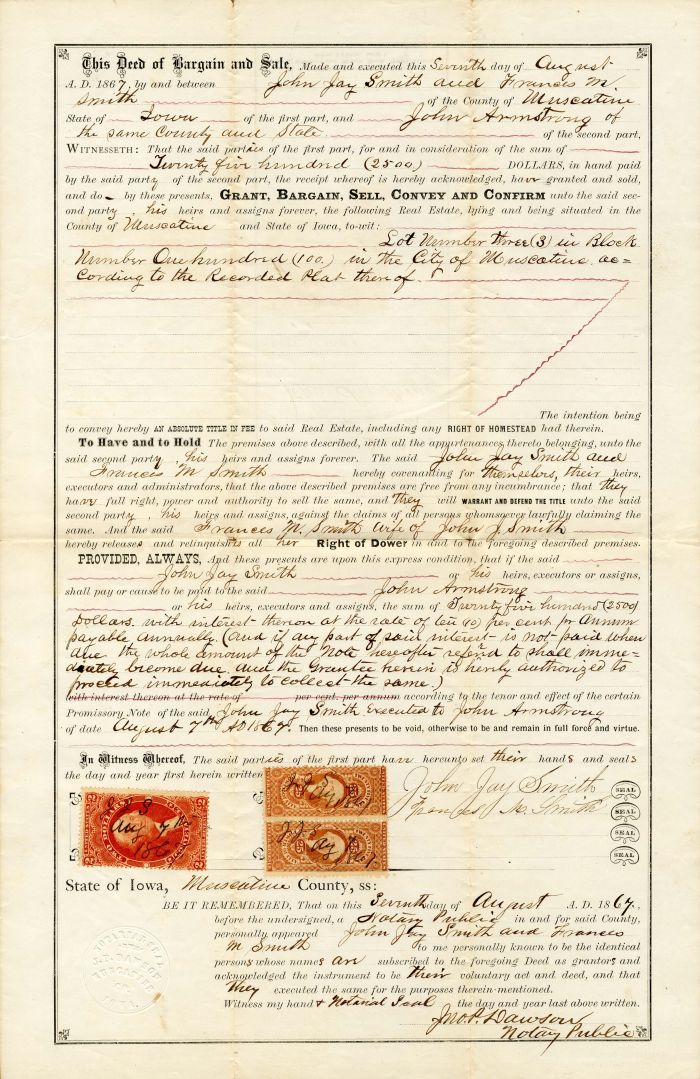 This Deed of Bargain and Sale, Made and executed this Seventh day of August
A. D. 1867, by and between John Jay Smith and Frances M.
Smith of the County of Muscatine
State of Iowa of the first part, and John Armstrong of
the same County and State of the second part,
WITNESSETH: That the said parties of the first part, for and in consideration of the sum of
Twenty five hundred (2500.) DOLLARS, in hand paid
by the said party of the second part, the receipt whereof is hereby acknowledged, have granted and sold,
and do by these presents, GRANT, BARGAIN, SELL, CONVEY AND CONFIRM unto the said sec-
ond party, his heirs and assigns forever, the following Real Estate, lying and being situated in the
County of Muscatine and State of Iowa, to-wit:
Lot Number three (3) in Block
Number One hundred (100.) in the City of Muscatine. ac=
cording to the Recorded Plat thereof.
The intention being
to convey hereby AN ABSOLUTE TITLE IN FEE to said Real Estate, including any RIGHT OF HOMESTEAD had therein.
To Have and to Hold The premises above described, with all the appurtenances thereto belonging, unto the
said second party, his heirs and assigns forever. The said John Jay Smith and
Frances M Smith hereby covenanting for themselves, their heirs,
executors and administrators, that the above described premises are free from any incumbrance; that they
have full right, power and authority to sell the same, and they will WARRANT AND DEFEND THE TITLE unto the said
second party, his heirs and assigns, against the claims of all persons whomsoever lawfully claiming the
same. And the said Frances M. Smith wife of John J. Smith
hereby releases and relinquishes all her Right of Dower in and to the foregoing described premises.
PROVIDED, ALWAYS, And these presents are upon this express condition, that if the said
John Jay Smith or his heirs, executors or assigns,
shall pay or cause to be paid to the said John Armstrong
or his heirs, executors and assigns, the sum of Twenty five hundred (2500)
Dollars. with interest thereon at the rate of ten (10) per cent pr Annum
payable annually. (and if any part of said interest is not paid when
due the whole amount of the Note hereafter referd to shall imme-
diately become due and the Grantee herein is hereby authorized to
proceed immediately to collect the same.)
with interest thereon at the rate of per cent. per annum according to the tenor and effect of the certain
Promissory Note of the said John Jay Smith Executed to John Armstrong
of date August 7th AD 1867. Then these presents to be void, otherwise to be and remain in full force and virtue.
In Witness Whereof, The said parties of the first part have hereunto set their hands and seals
the day and year first herein written
John Jay Smith SEAL
Frances M. Smith SEAL
SEAL
SEAL
J. J. S
Aug 7th
186
J. J. S
State of Iowa, Muscatine County, ss:
BE IT REMEMBERED, That on this Seventh day of August A. D. 1867,
before the undersigned, a Notary Public in and for said County,
personally appeared John Jay Smith and Frances
M Smith to me personally known to be the identical
persons whose names are subscribed to the foregoing Deed as grantors and
acknowledged the instrument to be their voluntary act and deed, and that
they executed the same for the purposes therein mentioned.
Witness my hand & Notarial Seal the day and year last above written.
Jno. P. Dawson
Notary Public